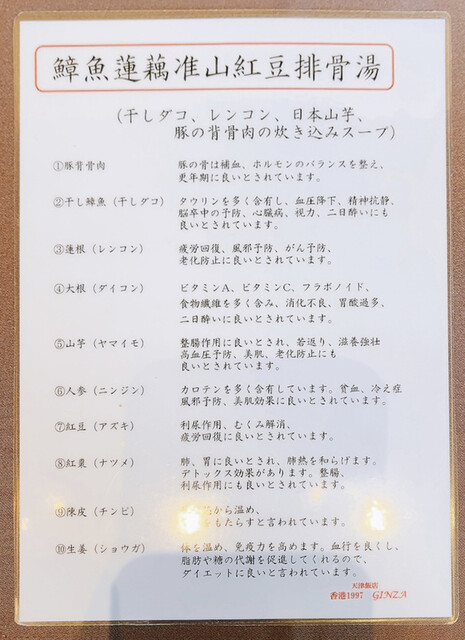 鱆魚蓮藕准山紅豆排骨湯
(干しダコ、レンコン、日本山芋、
豚の背骨肉の炊き込みスープ)
①豚背骨肉 豚の骨は補血、ホルモンのバランスを整え、
更年期に良いとされています。
②干し鱆魚(干しダコ) タウリンを多く含有し、血圧降下、精神抗静、
脳卒中の予防、心臓病、視力、二日酔いにも
良いとされています。
③蓮根(レンコン) 疲労回復、風邪予防、がん予防、
老化防止に良いとされています。
④大根(ダイコン) ビタミンA、ビタミンC、フラボノイド、
食物繊維を多く含み、消化不良、胃酸過多、
二日酔いに良いとされています。
⑤山芋(ヤマイモ) 整腸作用に良いとされ、若返り、滋養強壮
高血圧予防、美肌、老化防止にも
良いとされています。
⑥人参(ニンジン) カロテンを多く含有しています。貧血、冷え症
風邪予防、美肌効果に良いとされています。
⑦紅豆(アズキ) 利尿作用、むくみ解消、
疲労回復に良いとされています。
⑧紅棗(ナツメ) 肺、胃に良いとされ、肺熱を和らげます。
デトックス効果があります。整腸、
利尿作用にも良いとされています。
⑨陳皮(チンピ) から温め、
をもたらすと言われています。
⑩生姜(ショウガ) 体を温め、免疫力を高めます。血行を良くし、
脂肪や糖の代謝を促進してくれるので、
ダイエットに良いと言われています。
天津飯店
香港1997 GINZA